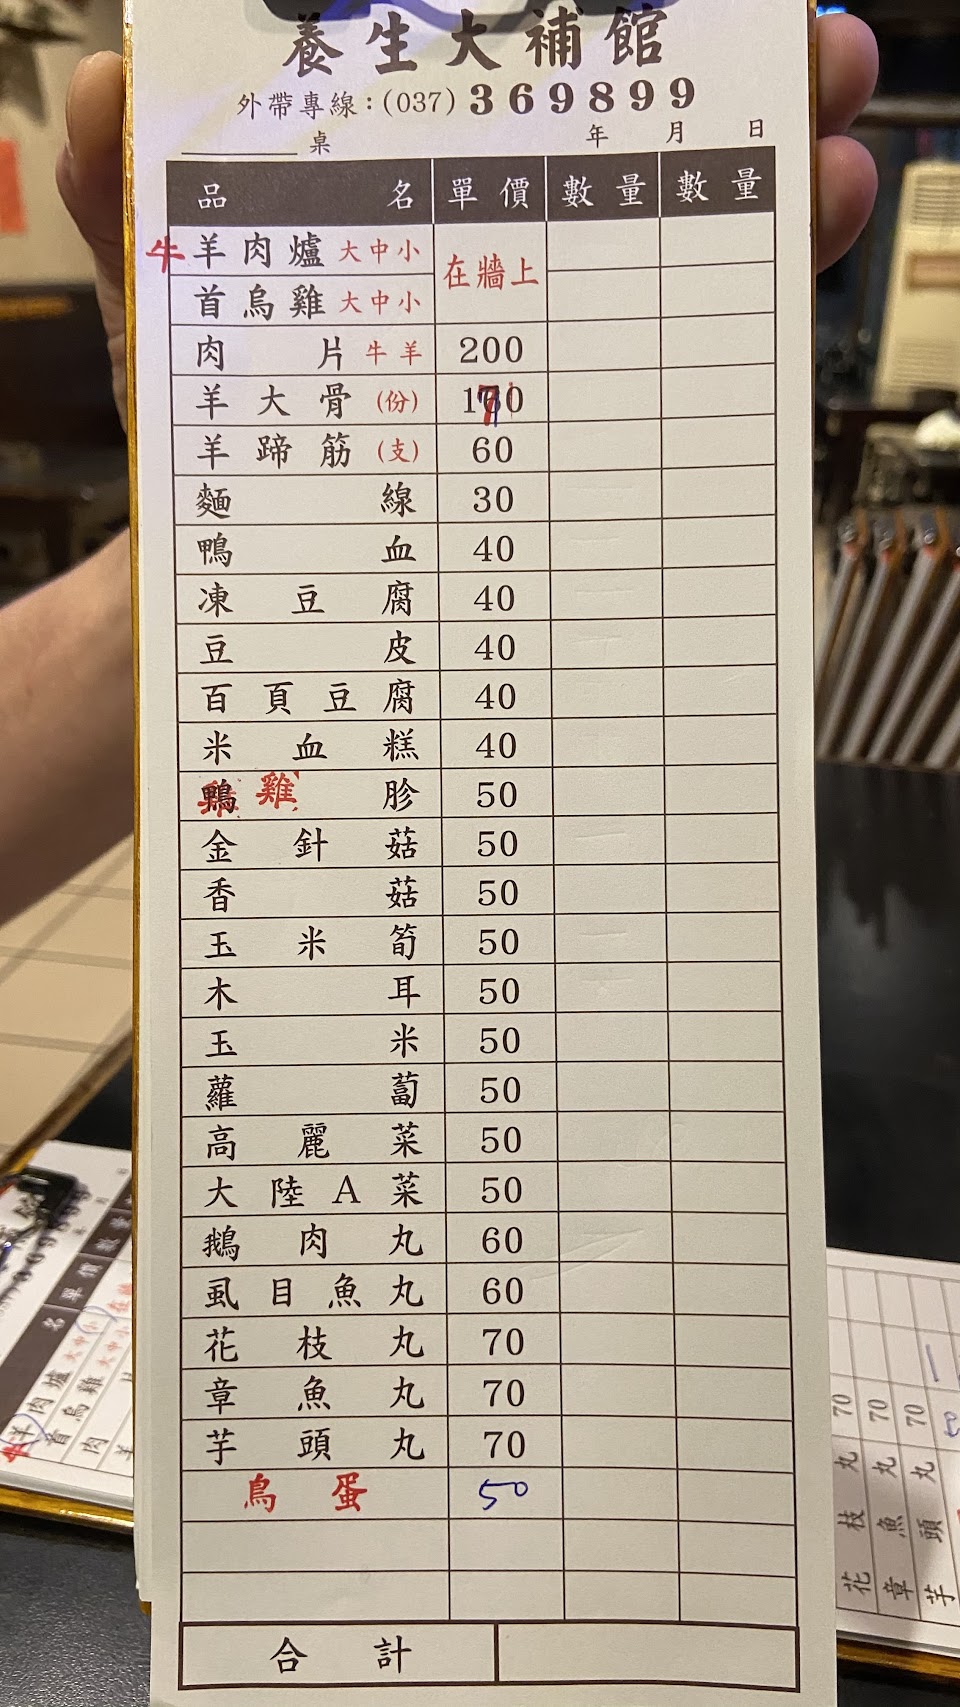 養生大補館
外帶專線：(037) 369899
桌 年 月 日
品名 單價 數量 數量
牛羊肉爐 大中小 在牆上
首烏雞 大中小
肉片 牛羊 200
羊大骨 (份) 170
羊蹄筋 (支) 60
麵線 30
鴨血 40
凍豆腐 40
豆皮 40
百頁豆腐 40
米血糕 40
雞胗 50
金針菇 50
香菇 50
玉米筍 50
木耳 50
玉米 50
蘿蔔 50
高麗菜 50
大陸A菜 50
鵝肉丸 60
虱目魚丸 60
花枝丸 70
章魚丸 70
芋頭丸 70
鳥蛋 50
合計
花枝丸 70
章魚丸 70
芋頭丸 70